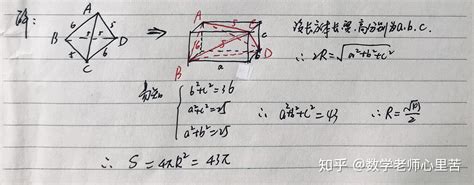 解:
A
6 5
B 5 5 D
5 6
C
⇒
A
5
C
B
D
a
b
c
6
设长方体长、宽、高分别为a.b.c.
∴ 2R=√(a²+b²+c²)
易知
{ b²+c²=36
a²+c²=25
a²+b²=25
∴ a²+b²+c²=43 ∴R=√43/2
∴ S=4πR²=43π
知乎 @数学老师心里苦